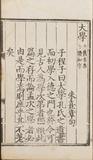 大學
朱熹章句
子程子曰大學孔氏之遺書
而初學入德之門也於今可
見古人為學次第者獨賴此
篇之存而論孟次之學者必
由是而學焉則庶乎其不差
矣